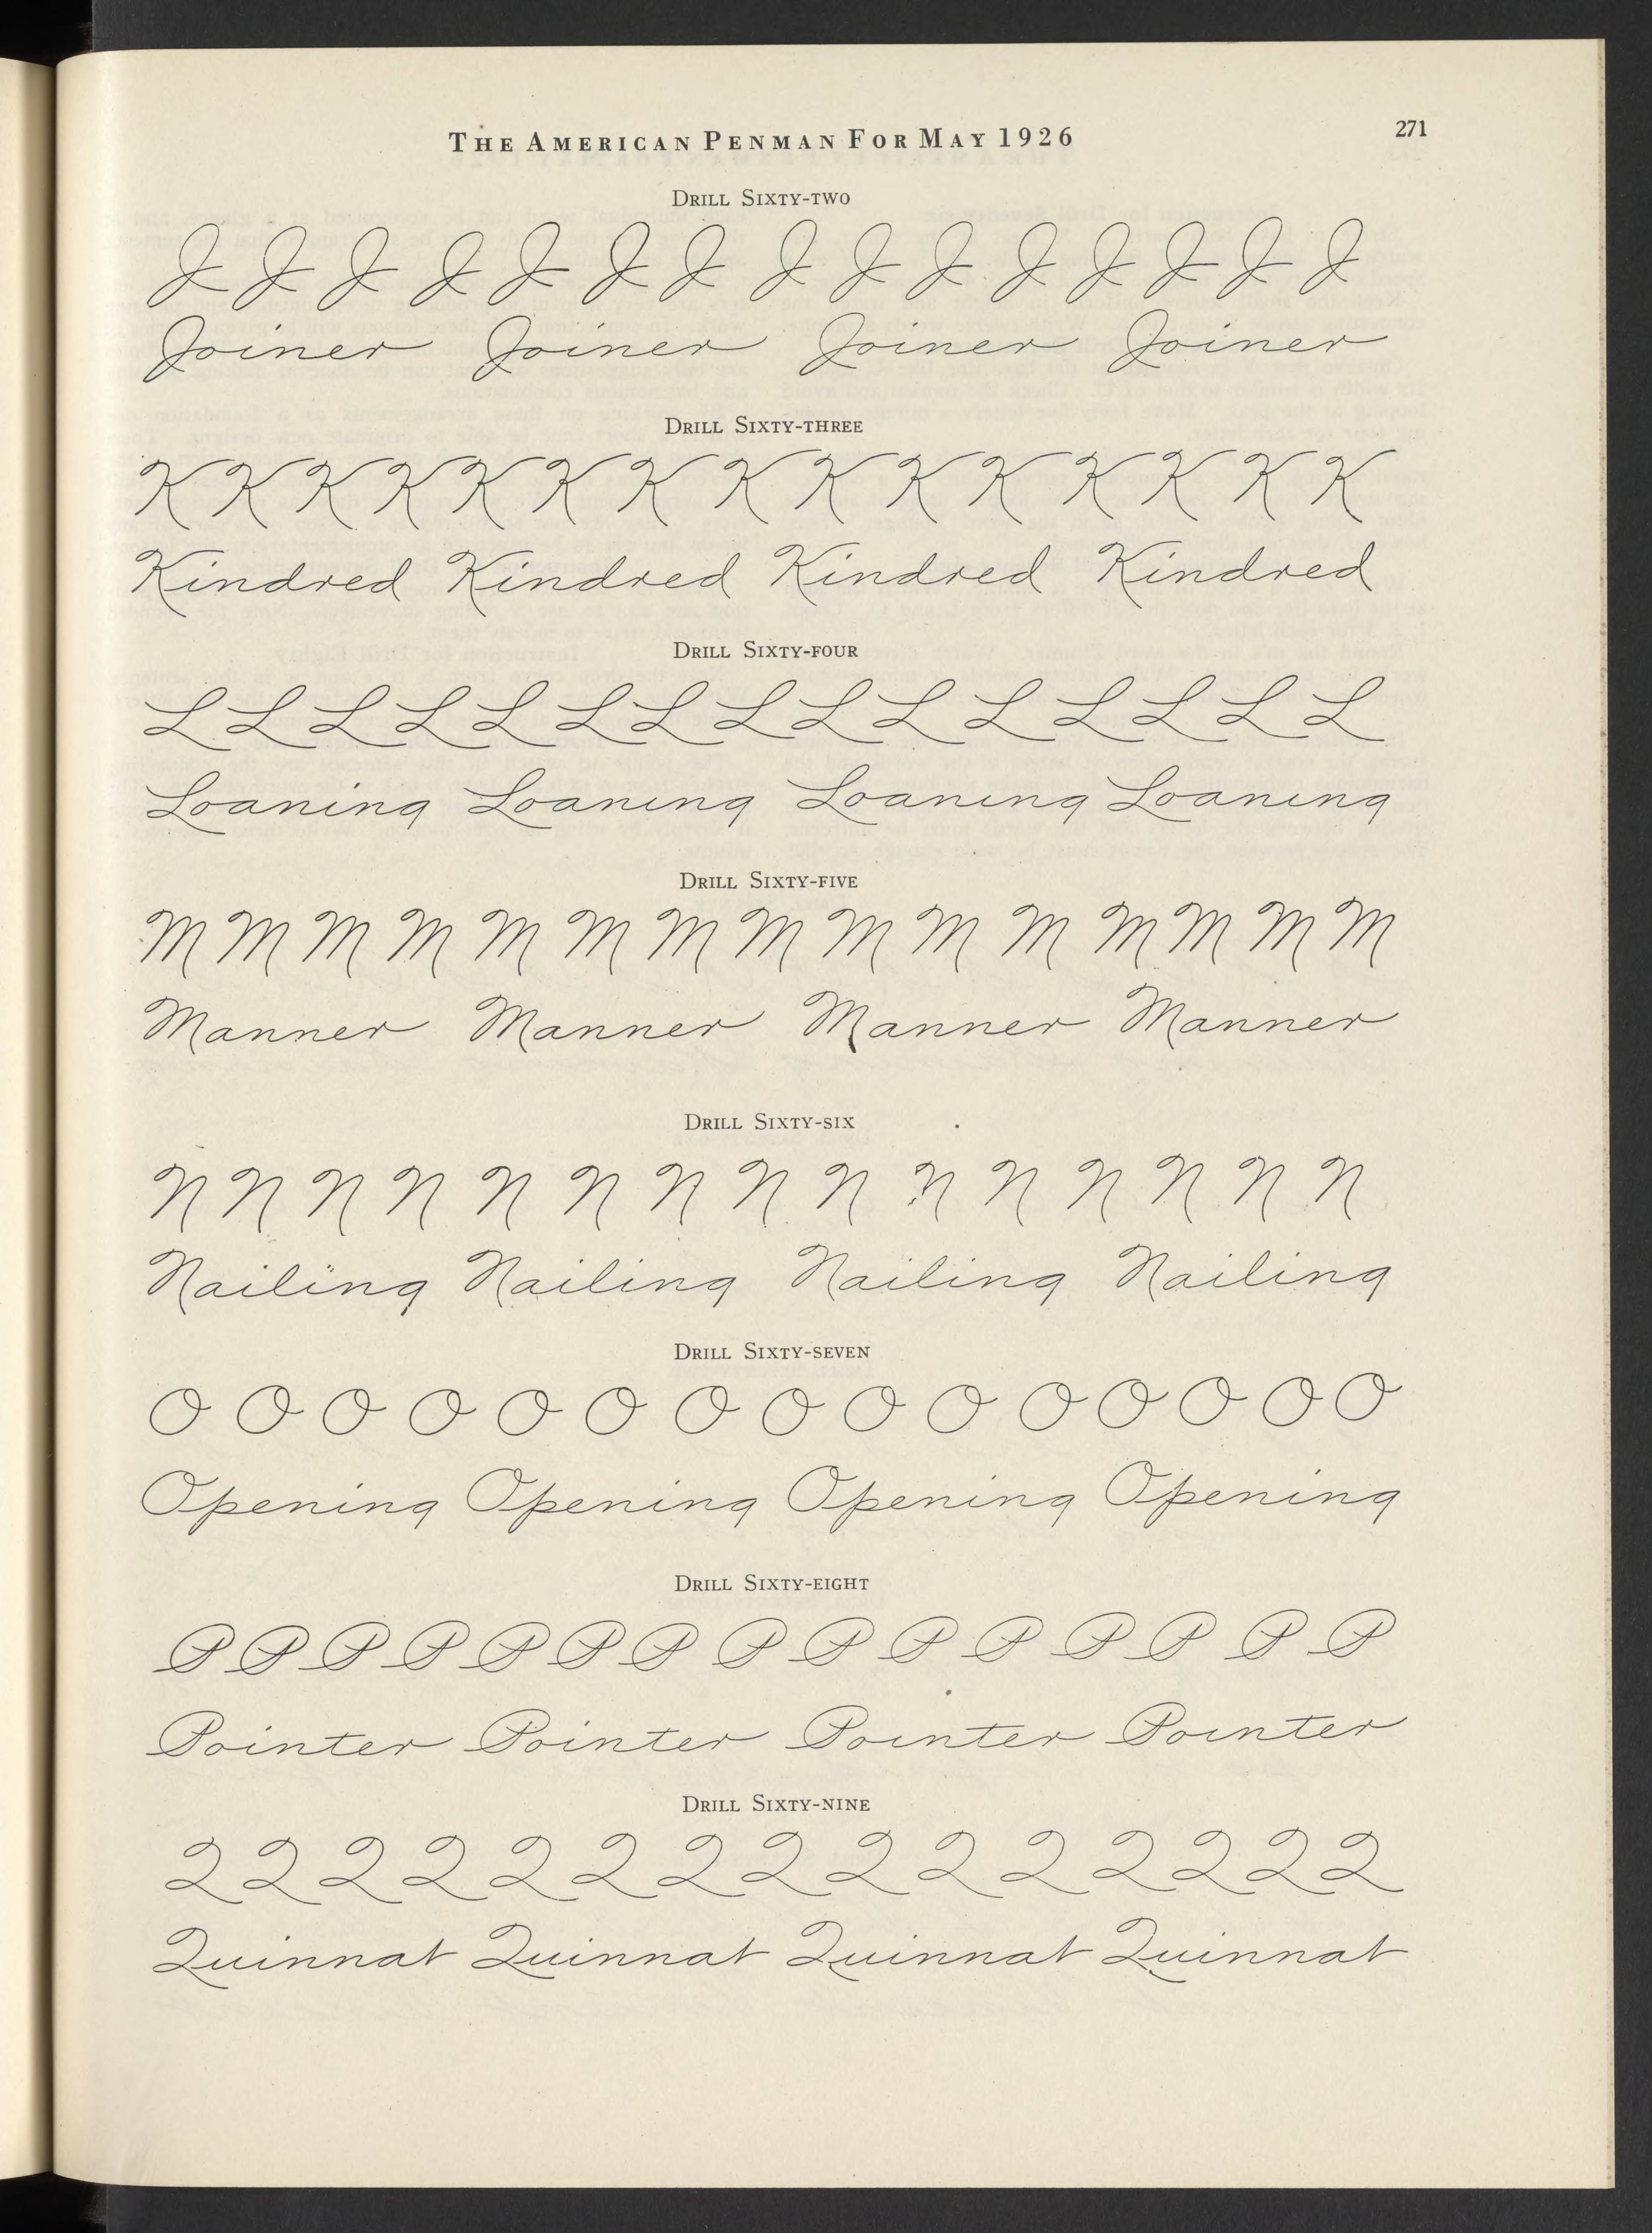 THE AMERICAN PENMAN FOR MAY 1926 271
DRILL SIXTY-TWO
J J J J J J J J J J J J J J J
Joiner Joiner Joiner Joiner
DRILL SIXTY-THREE
K K K K K K K K K K K K K K K
Kindred Kindred Kindred Kindred
DRILL SIXTY-FOUR
L L L L L L L L L L L L L L L
Loaning Loaning Loaning Loaning
DRILL SIXTY-FIVE
M M M M M M M M M M M M M M M
Manner Manner Manner Manner
DRILL SIXTY-SIX
N N N N N N N N N N N N N N N
Nailing Nailing Nailing Nailing
DRILL SIXTY-SEVEN
O O O O O O O O O O O O O O O
Opening Opening Opening Opening
DRILL SIXTY-EIGHT
P P P P P P P P P P P P P P P
Pointer Pointer Pointer Pointer
DRILL SIXTY-NINE
Q Q Q Q Q Q Q Q Q Q Q Q Q Q Q
Quinnat Quinnat Quinnat Quinnat